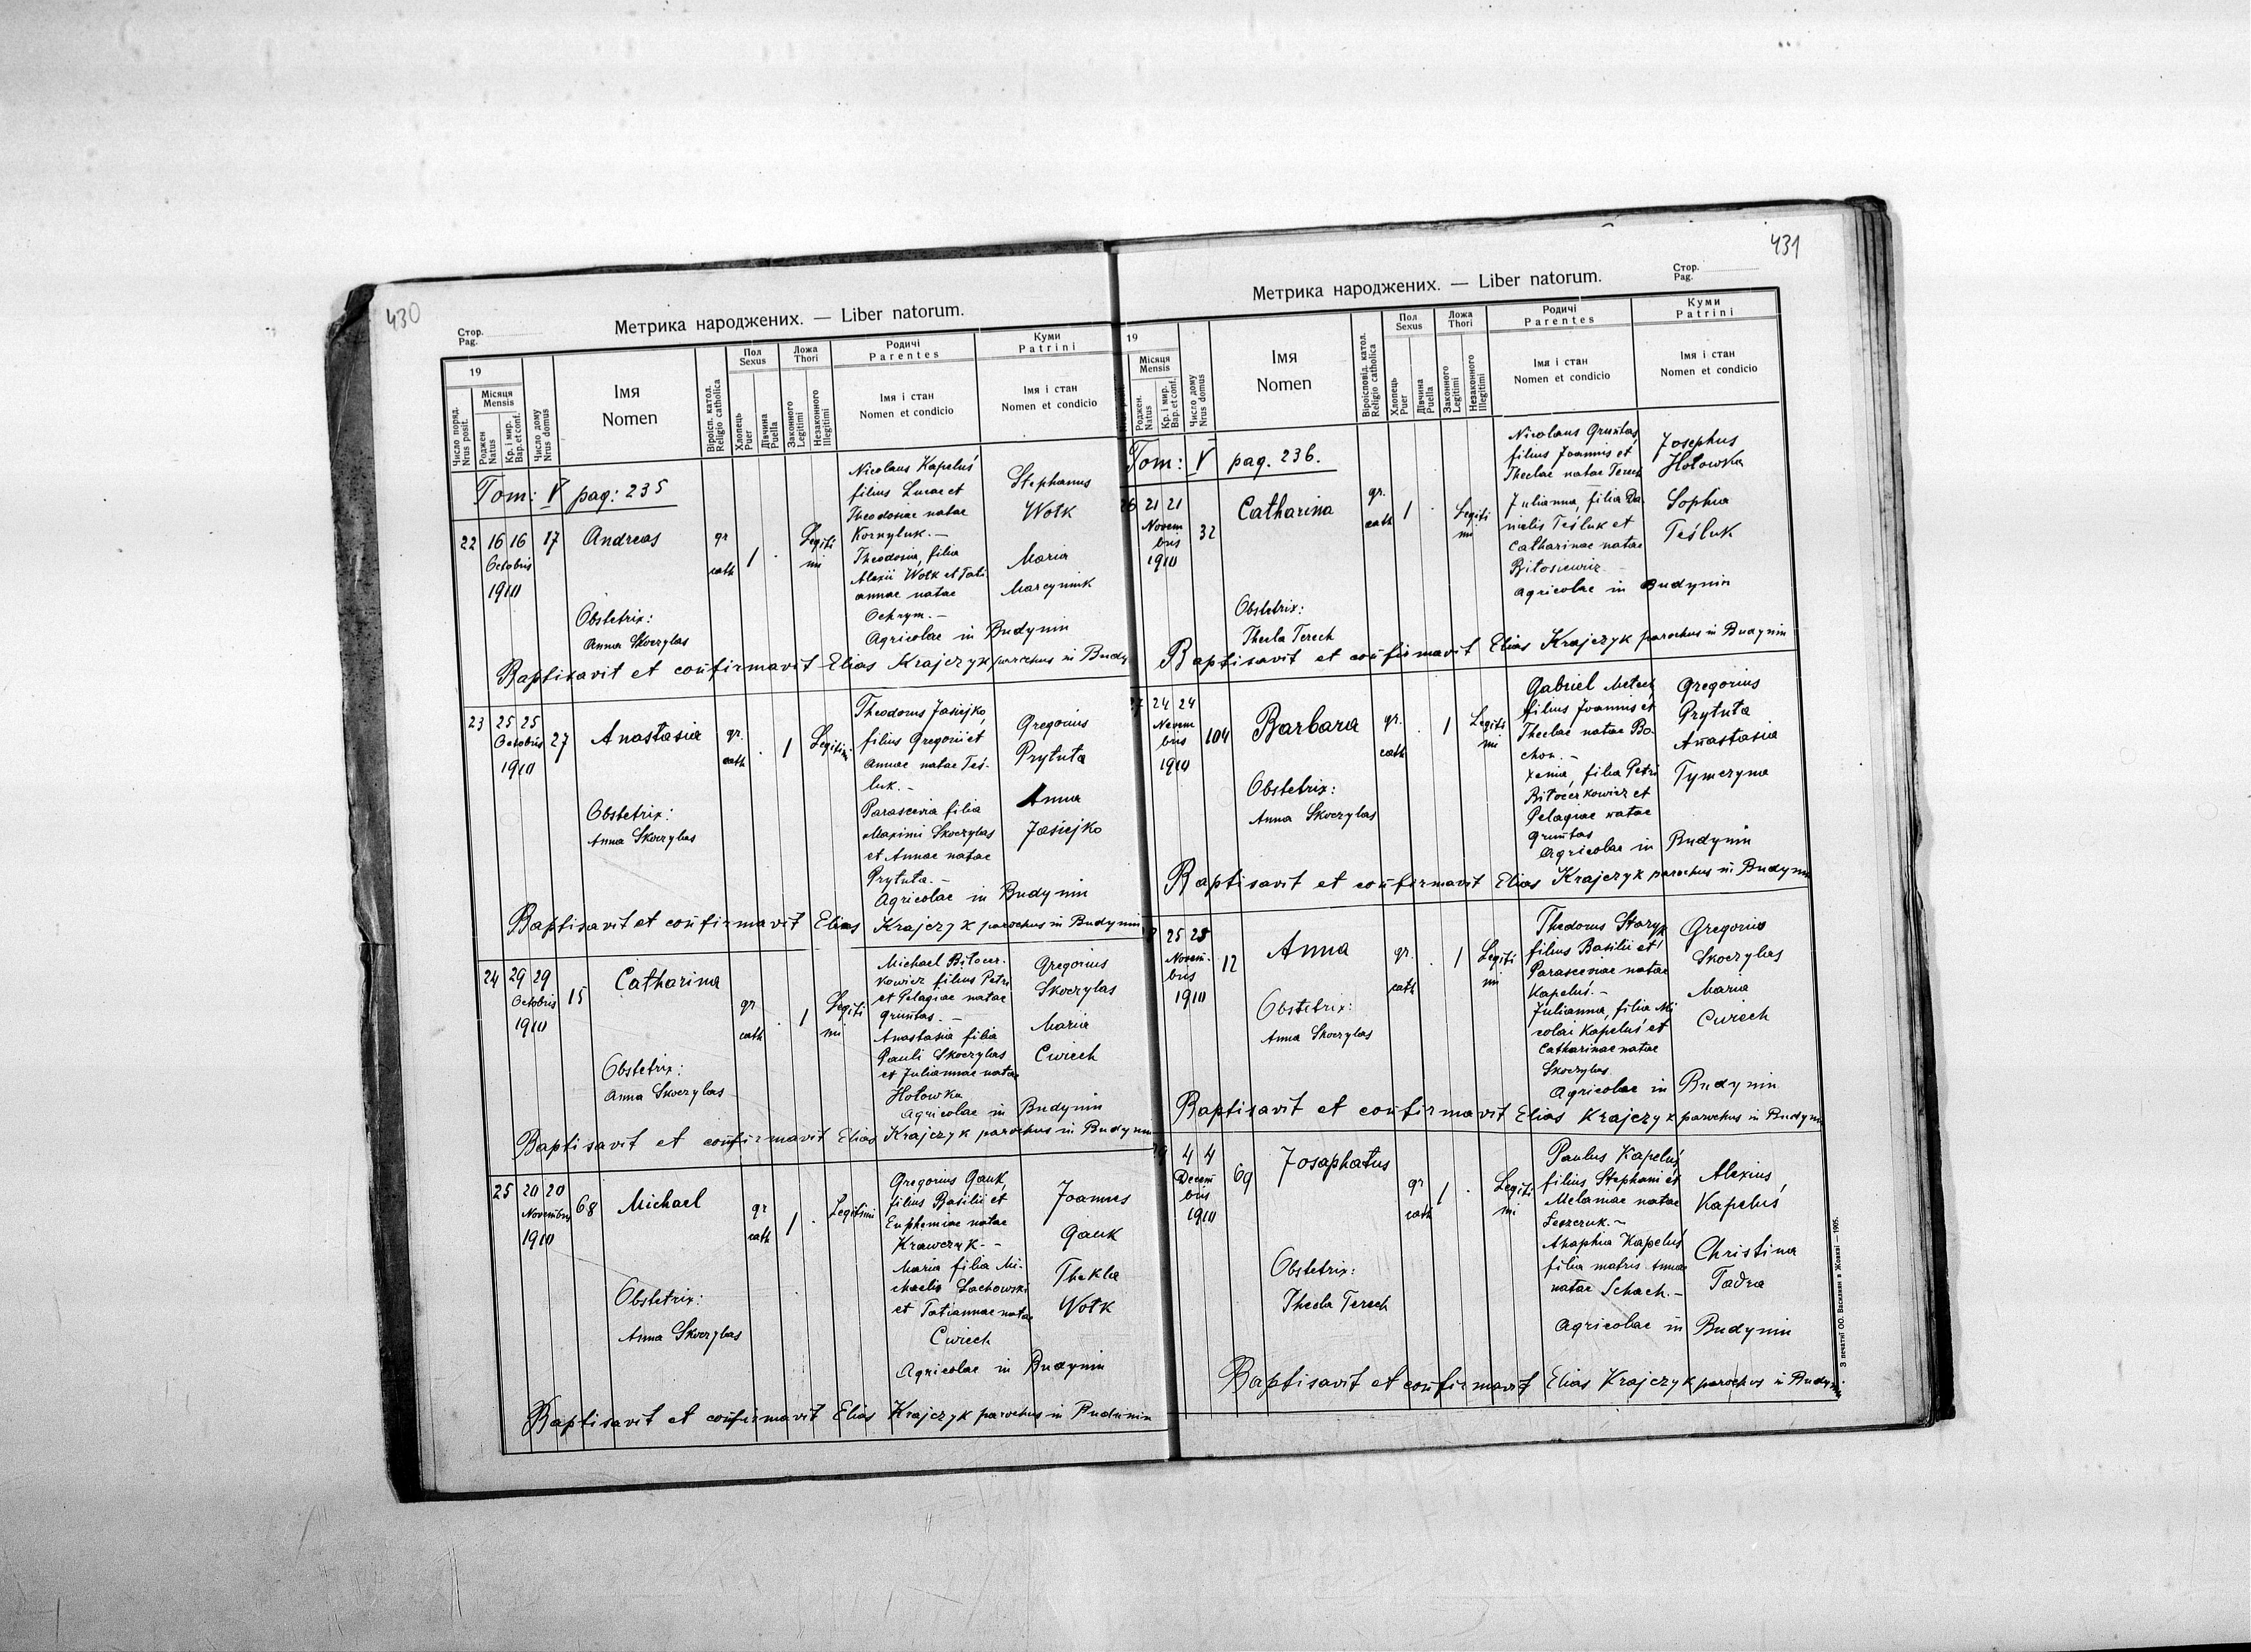 430
Стор.
Pag.
Метрика народжених. — Liber natorum.
19
Число поряд.
Nrus posit.
Місяця
Mensis
Роджен
Natus
Кр. і мир.
Bap. et conf.
Число дому
Nrus domus
Імя
Nomen
Віроісп. катол.
Religio catholica
Пол
Sexus
Хлопець
Puer
Дівчина
Puella
Ложа
Thori
Законного
Legitimi
Незаконного
Illegitimi
Родичі
Parentes
Імя і стан
Nomen et condicio
Куми
Patrini
Імя і стан
Nomen et condicio
Tom: V pag: 235
22 16 16 17 Andreas gr 1 . Legiti
Octobris cath mi
1910
Nicolaus Kapeluś
filius Lucae et
Theodosiae natae
Kornyluk. —
Theodosia, filia
Alexii Wołk et Tati
annae natae
Ochrym. —
Agricolae in Budynin
Stephanus
Wołk
Maria
Marcyniuk
Obstetrix:
Anna Skoczylas
Baptisavit et confirmavit Elias Krajczyk parochus in Budy
23 25 25 27 Anastasia gr. . 1 Legitimi
Octobris cath
1910
Theodorus Jasiejko,
filius Gregorii et
Annae natae Teś-
luk. —
Parascevia filia
Maximi Skoczylas
et Annae natae
Prytuła. —
Agricolae in Budynin
Gregorius
Prytuła
Anna
Jasiejko
Obstetrix:
Anna Skoczylas
Baptisavit et confirmavit Elias Krajczyk parochus in Budynin
24 29 29 15 Catharina gr . 1 Legiti
Octobris cath mi
1910
Michael Biłocer-
kowicz filius Petri
et Pelagiae natae
Gruntas. —
Anastasia filia
Pauli Skoczylas
et Juliannae natae
Hołowka
Agricolae in Budynin
Gregorius
Skoczylas
Maria
Cwiech
Obstetrix:
Anna Skoczylas
Baptisavit et confirmavit Elias Krajczyk parochus in Budynin
25 20 20 68 Michael gr 1 . Legitimi
Novembris cath
1910
Gregorius Gauk,
filius Basilii et
Euphemiae natae
Krawczyk. —
Maria filia Mi-
chaelis Lachowski
et Tatiannae natae
Cwiech
Agricolae in Budynin
Joannes
Gauk
Thekla
Wołk
Obstetrix:
Anna Skoczylas
Baptisavit et confirmavit Elias Krajczyk parochus in Budynin
431
Стор.
Pag.
Метрика народжених. — Liber natorum.
19
Місяця
Mensis
Роджен.
Natus
Кр. і мир.
Bap. et conf.
Число дому
Nrus domus
Імя
Nomen
Віроісповід. катол.
Religio catholica
Пол
Sexus
Хлопець
Puer
Дівчина
Puella
Ложа
Thori
Законного
Legitimi
Незаконного
Illegitimi
Родичі
Parentes
Імя і стан
Nomen et condicio
Куми
Patrini
Імя і стан
Nomen et condicio
Tom: V pag. 236.
26 21 21 32 Catharina gr. 1 . Legiti
Novem cath mi
bris
1910
Nicolaus Gruntas,
filius Joannis et
Theclae natae Terech
Julianna, filia Da
nielis Teśluk et
Catharinae natae
Biłosiewicz
Agricolae in Budynin
Josephus
Hołowka
Sophia
Teśluk
Obstetrix:
Thecla Terech
Baptisavit et confirmavit Elias Krajczyk parochus in Budynin
24 24 104 Barbara gr. . 1 Legiti
Novem cath mi
bris
1910
Gabriel Melech,
filius Joannis et
Theclae natae Bo-
chon. —
Xenia, filia Petri
Biłocerkowicz et
Pelagiae natae
Gruntas
Agricolae in Budynin
Gregorius
Prytuła
Anastasia
Tymczyna
Obstetrix:
Anna Skoczylas
Baptisavit et confirmavit Elias Krajczyk parochus in Budynin
25 25 12 Anna gr. . 1 Legiti
Novem- cath mi
bris
1910
Theodorus Staryk
filius Basilii et
Parasceviae natae
Kapeluś. —
Julianna, filia Ni
colai Kapeluś et
Catharinae natae
Skoczylas
Agricolae in Budynin
Gregorius
Skoczylas
Maria
Cwiech
Obstetrix:
Anna Skoczylas
Baptisavit et confirmavit Elias Krajczyk parochus in Budynin
4 4 69 Josaphatus gr 1 . Legiti
Decem cath mi
bris
1910
Paulus Kapeluś,
filius Stephani et
Melaniae natae
Leszczuk. —
Ahaphia Kapeluś
filia matris Annae
natae Schach. —
Agricolae in Budynin
Alexius
Kapeluś
Christina
Tadra
Obstetrix:
Thecla Terech
Baptisavit et confirmavit Elias Krajczyk parochus in Budynin
З печатні ОО. Василиян в Жовкві — 1905.